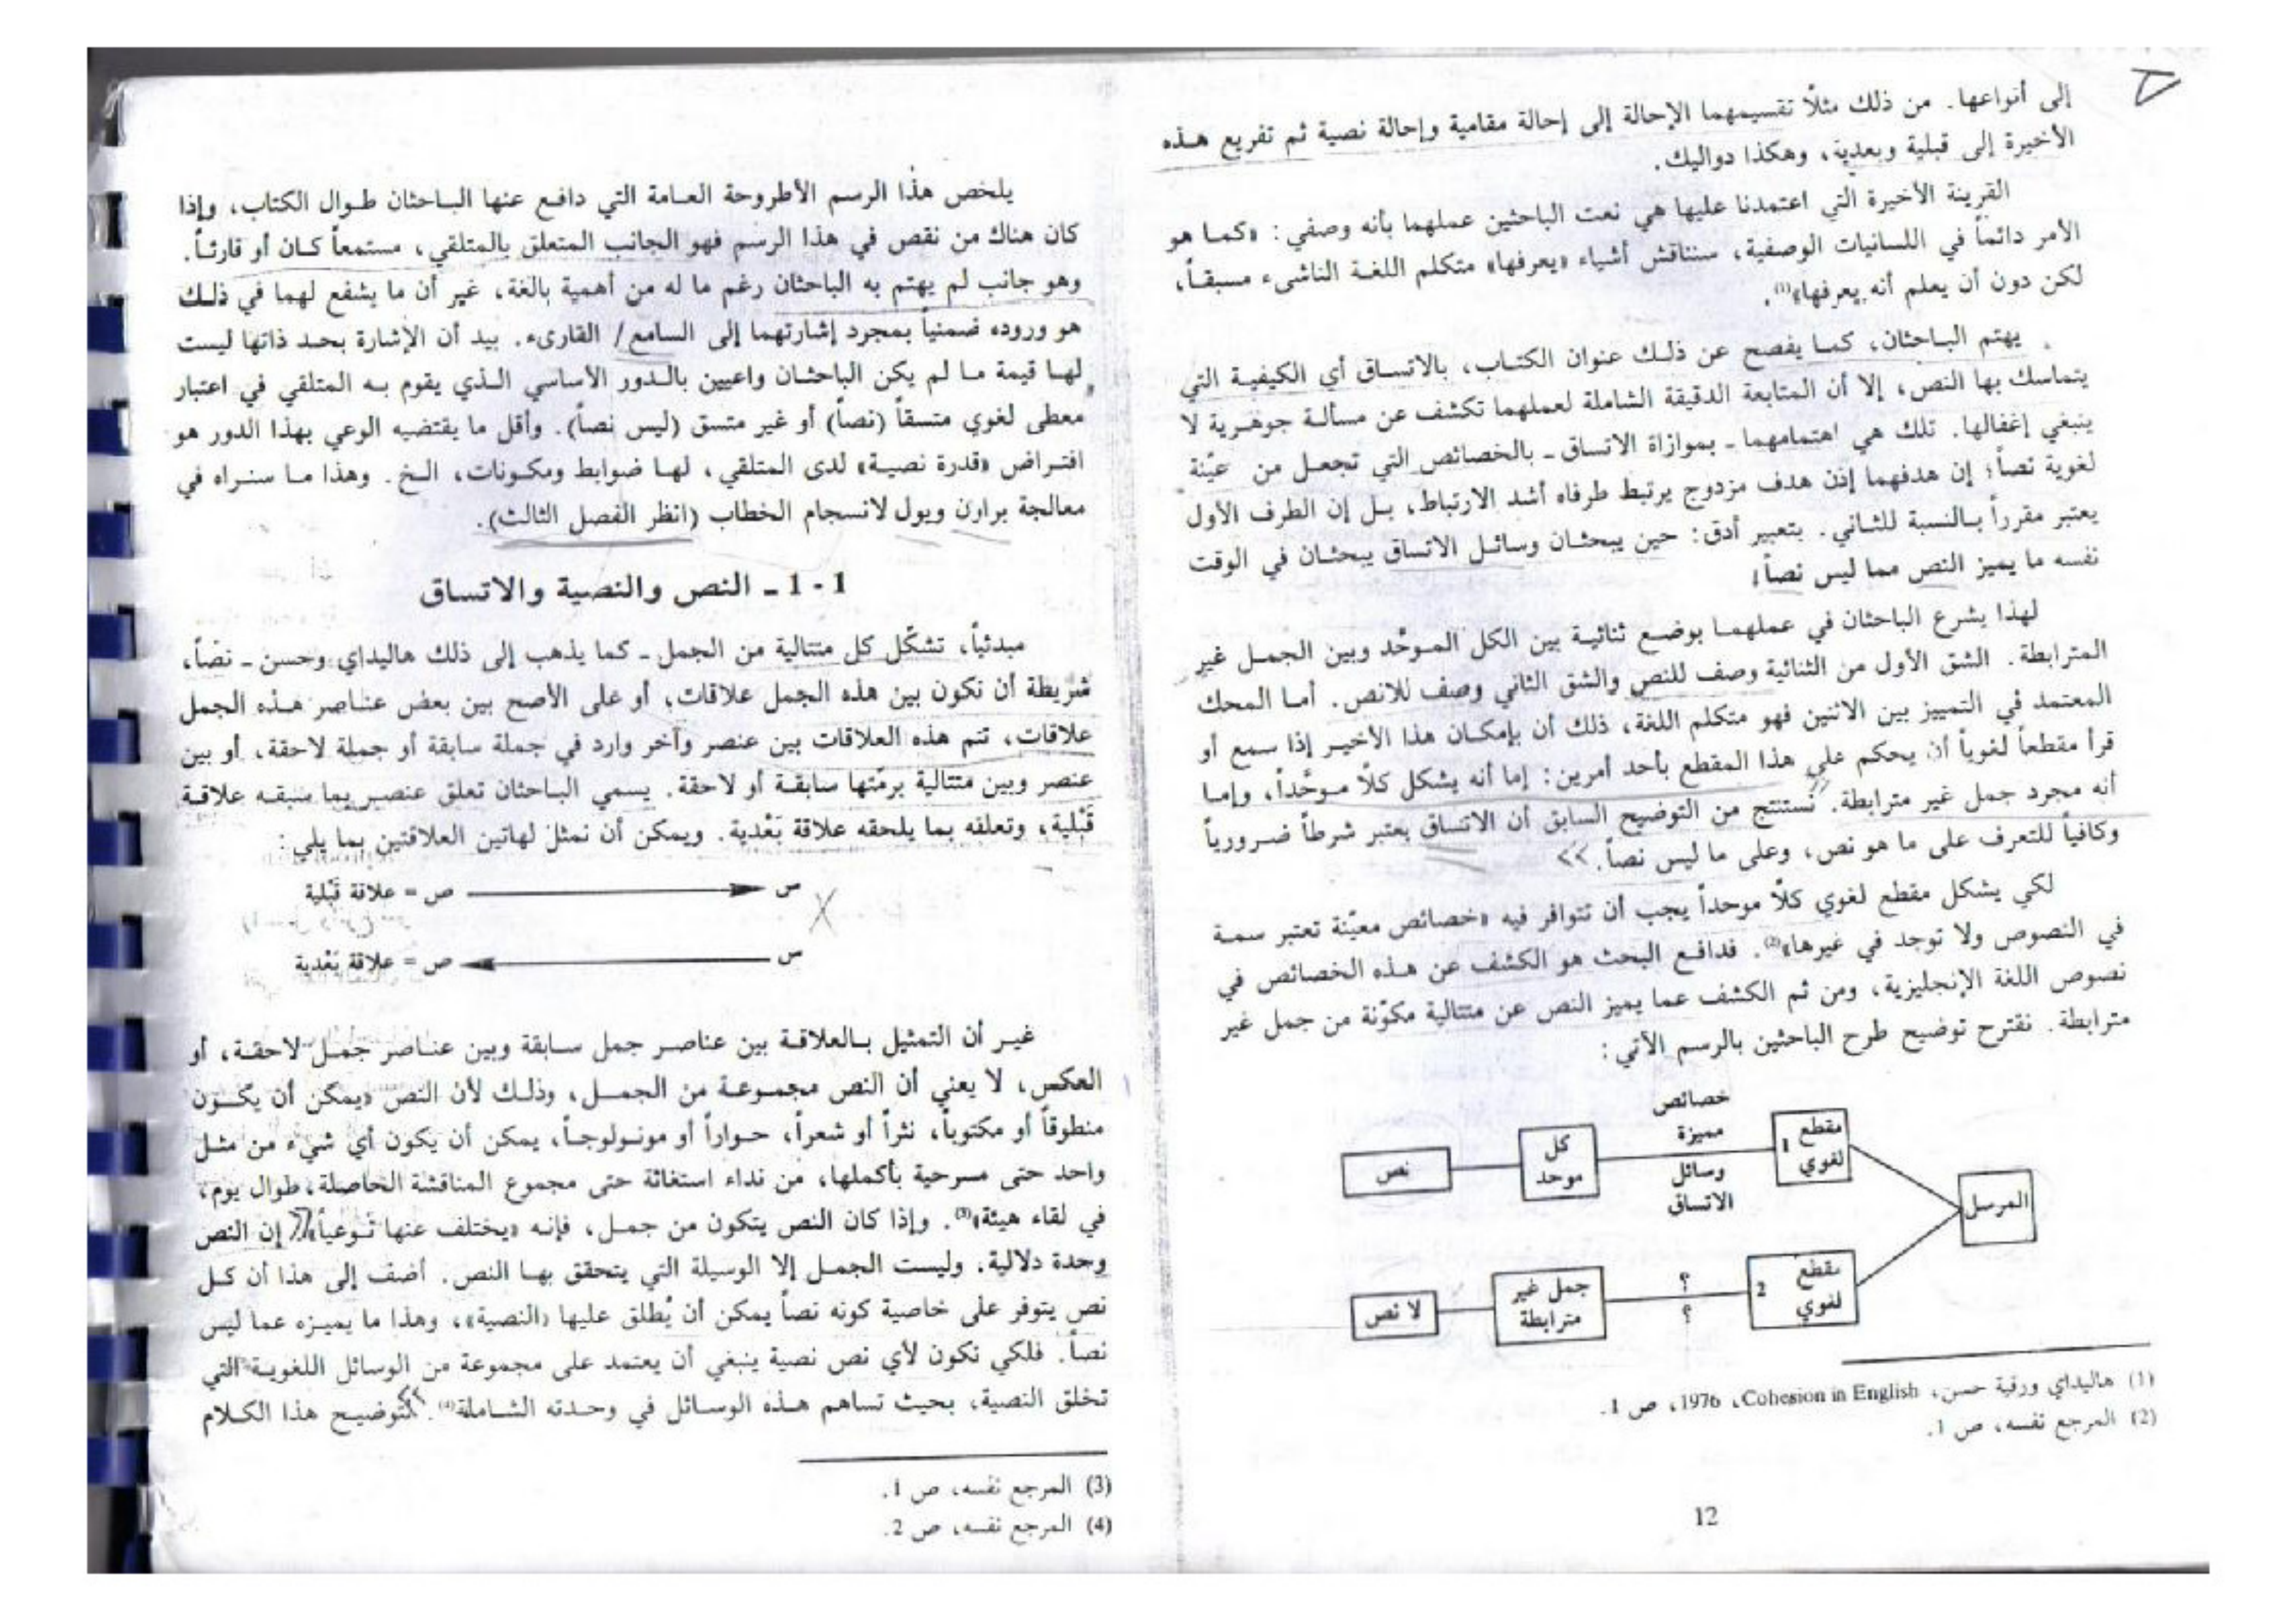 إلى أنواعها. من ذلك مثلًا تقسيمهما الإحالة إلى إحالة مقامية وإحالة نصية ثم تفريع هـذه
الأخيرة إلى قبلية وبعدية، وهكذا دواليك.
القرينة الأخيرة التي اعتمدنا عليها هي نعت الباحثين عملهما بأنه وصفي: «كمـا هو
الأمر دائماً في اللسانيات الوصفية، سنناقش أشياء «يعرفها» متكلم اللغـة الناشىء مسبقـاً،
لكن دون أن يعلم أنه يعرفها»(1).
يهتم البـاحثان، كمـا يفصح عن ذلـك عنوان الكتـاب، بالاتسـاق أي الكيفيـة التي
يتماسك بها النص، إلا أن المتابعة الدقيقة الشاملة لعملهما تكشف عن مسألـة جوهـرية لا
ينبغي إغفالها. تلك هي اهتمامهمـا ـ بموازاة الاتساق ـ بالخصائص التي تجعـل من عيّنة
لغوية نصاً؛ إن هدفهما إذن هدف مزدوج يرتبط طرفاه أشد الارتباط، بـل إن الطرف الأول
يعتبر مقرراً بـالنسبة للثـاني. بتعبير أدق: حين يبحثـان وسائـل الاتساق يبحثـان في الوقت
نفسه ما يميز النص مما ليس نصاً!
لهذا يشرع الباحثان في عملهمـا بوضـع ثنائيـة بين الكل المـوحّد وبين الجمـل غير
المترابطة. الشق الأول من الثنائية وصف للنص والشق الثاني وصف للانص. أمـا المحك
المعتمد في التمييز بين الاثنين فهو متكلم اللغة، ذلك أن بإمكـان هذا الأخيـر إذا سمع أو
قرأ مقطعاً لغوياً أن يحكم على هذا المقطع بأحد أمرين: إما أنه يشكل كلّا مـوحّداً، وإمـا
أنه مجرد جمل غير مترابطة. نستنتج من التوضيح السابق أن الاتساق يعتبر شرطاً ضـرورياً
وكافياً للتعرف على ما هو نص، وعلى ما ليس نصاً.
لكي يشكل مقطع لغوي كلّا موحداً يجب أن تتوافر فيه «خصائص معيّنة تعتبر سمـة
في النصوص ولا توجد في غيرها»(2). فدافـع البحث هو الكشف عن هـذه الخصائص في
نصوص اللغة الإنجليزية، ومن ثم الكشف عما يميز النص عن متتالية مكوّنة من جمل غير
مترابطة. نقترح توضيح طرح الباحثين بالرسم الآتي:
المرسل
مقطع لغوي 1
خصائص مميزة
وسائل الاتساق
كل موحد
نص
مقطع لغوي 2
؟
؟
جمل غير مترابطة
لا نص
(1) هاليداي ورقية حسن، Cohesion in English، 1976، ص 1.
(2) المرجع نفسه، ص 1.
12
يلخص هذا الرسم الأطروحة العـامة التي دافـع عنها البـاحثان طـوال الكتاب، وإذا
كان هناك من نقص في هذا الرسم فهو الجانب المتعلق بالمتلقي، مستمعاً كـان أو قارئـاً.
وهو جانب لم يهتم به الباحثان رغم ما له من أهمية بالغة، غير أن ما يشفع لهما في ذلـك
هو وروده ضمنياً بمجرد إشارتهما إلى السامع/ القارىء. بيد أن الإشارة بحـد ذاتها ليست
لهـا قيمة مـا لم يكن الباحثـان واعيين بالـدور الأساسي الـذي يقوم بـه المتلقي في اعتبار
معطى لغوي متسقاً (نصاً) أو غير متسق (ليس نصاً). وأقل ما يقتضيه الوعي بهذا الدور هو
افتـراض «قدرة نصيـة» لدى المتلقي، لهـا ضوابط ومكـونات، الـخ. وهذا مـا سنـراه في
معالجة براون ويول لانسجام الخطاب (انظر الفصل الثالث).
1 - 1 ـ النص والنصية والاتساق
مبدئياً، تشكّل كل متتالية من الجمل ـ كما يذهب إلى ذلك هاليداي وحسن ـ نصّاً،
شريطة أن تكون بين هذه الجمل علاقات، أو على الأصح بين بعض عنـاصر هـذه الجمل
علاقات، تتم هذه العلاقات بين عنصر وآخر وارد في جملة سابقة أو جملة لاحقة، أو بين
عنصر وبين متتالية برمّتها سابقـة أو لاحقة. يسمي البـاحثان تعلق عنصـر بما سبقـه علاقـة
قَبْلية، وتعلقه بما يلحقه علاقة بَعْدية. ويمكن أن نمثل لهاتين العلاقتين بما يلي:
س ص = علاقة قَبْلية
س ص = علاقة بَعْدية
غيـر أن التمثيل بـالعلاقـة بين عناصـر جمل سـابقة وبين عنـاصر جمـل لاحقـة، أو
العكس، لا يعني أن النص مجمـوعـة من الجمـل، وذلـك لأن النص «يمكن أن يكـون
منطوقاً أو مكتوباً، نثراً أو شعراً، حـواراً أو مونـولوجـاً، يمكن أن يكون أي شيء من مثـل
واحد حتى مسرحية بأكملها، من نداء استغاثة حتى مجموع المناقشة الحاصلة طوال يوم،
في لقاء هيئة»(3). وإذا كان النص يتكون من جمـل، فإنـه «يختلف عنها نـوعياً» إن النص
وحدة دلالية. وليست الجمـل إلا الوسيلة التي يتحقق بهـا النص. أضف إلى هذا أن كـل
نص يتوفر على خاصية كونه نصاً يمكن أن يُطلق عليها «النصية»، وهذا ما يميـزه عما ليس
نصاً. فلكي تكون لأي نص نصية ينبغي أن يعتمد على مجموعة من الوسائل اللغويـة التي
تخلق النصية، بحيث تساهم هـذه الوسـائل في وحـدته الشـاملة(4). لتوضيـح هذا الكـلام
(3) المرجع نفسه، ص 1.
(4) المرجع نفسه، ص 2.